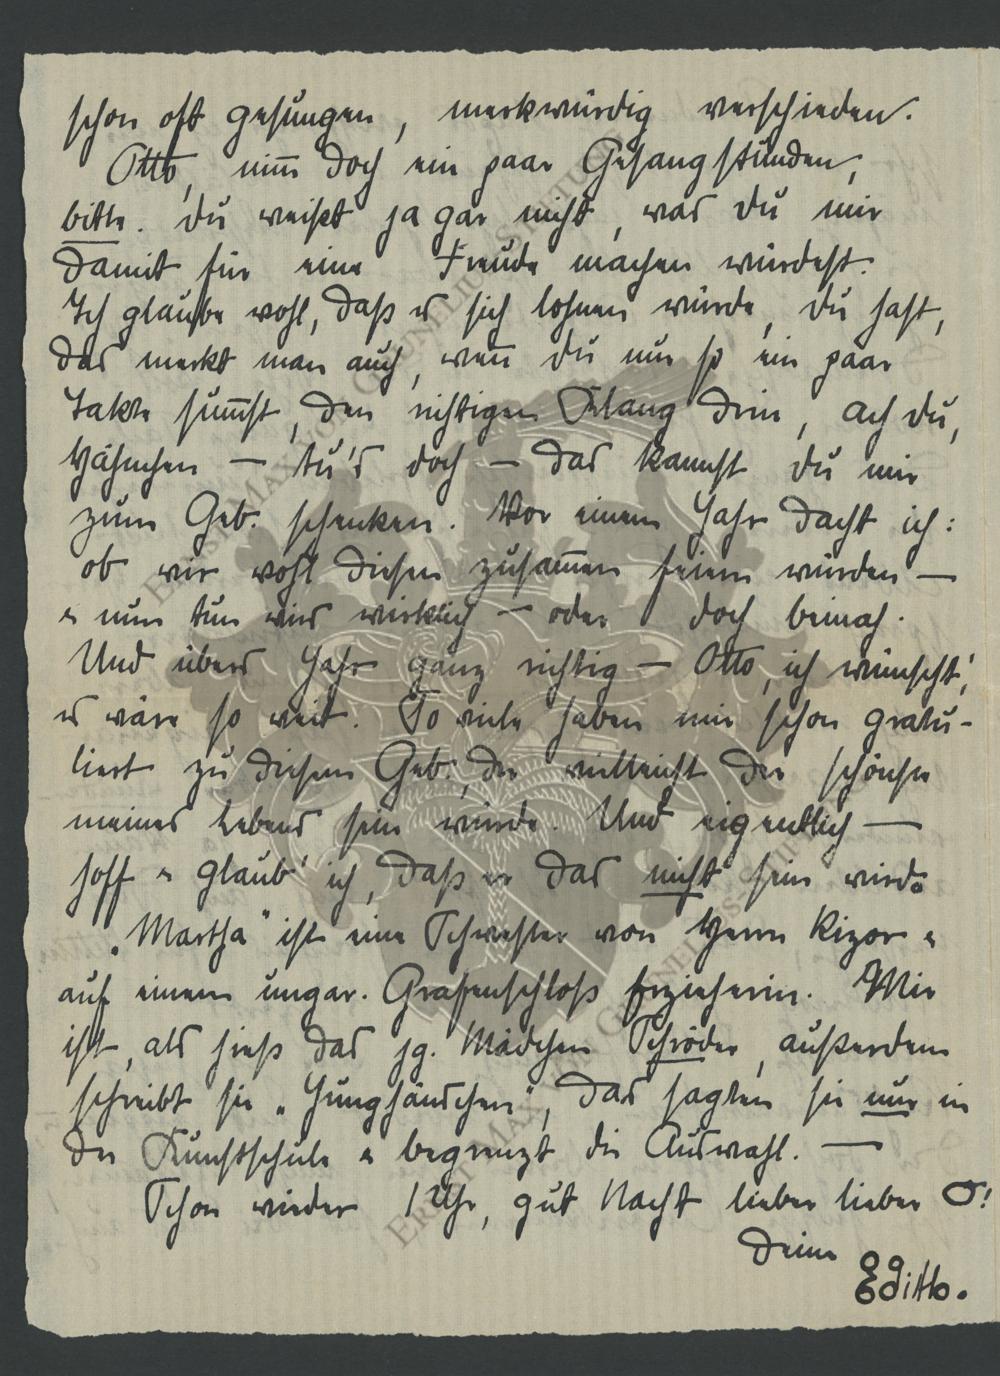 schon oft gesungen, merkwürdig verschieden.
Otto, nim̅ doch ein paar Gesangstunden,
bitte. Du weißt ja gar nicht, was Du mir
damit für eine Freude machen würdest.
Ich glaube wohl, daß es sich lohnen würde, Du hast,
das merkt man auch, wen̅ Du nur so ein paar
Takte sum̅st, den richtigen Klang drin, ach Du,
Hähnchen — tu's doch — das kannst Du mir
zum Geb. schenken. Vor einem Jahr dacht ich:
ob wir wohl diesen zusam̅en feiern würden —
u nun tun wirs wirklich — oder doch beinah.
Und übers Jahr ganz richtig — Otto, ich wünscht',
es wäre so weit. So viele haben mir schon gratu-
liert zu diesem Geb., der vielleicht der schönste
meines Lebens sein würde. Und eigentlich —
hoff u glaub' ich, daß er das nicht sein wird.
„Martha" ist eine Schwester von Herrn Rizor u
auf einem ungar. Grafenschloß Erzieherin. Mir
ist, als hieß das jg. Mädchen Schröder, außerdem
schreibt sie „Junghänschen", das sagten sie nur in
der Kunstschule u begrenzt die Auswahl. —
Schon wieder 1 Uhr, gut Nacht lieber lieber O!
Deine
Editb.
ERNST MAX VON